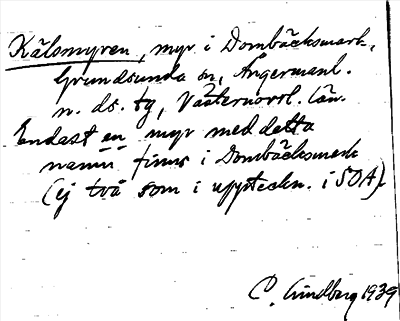 Kälsmyren, myr i Dombäcksmark,
Grundsunda sn, Ångermanl.
n. ds. tg, Västernorrl. län.
Endast en myr med detta
namn finns i Dombäcksmark
(ej två som i uppteckn. i SOA).
C. Lindberg 1939